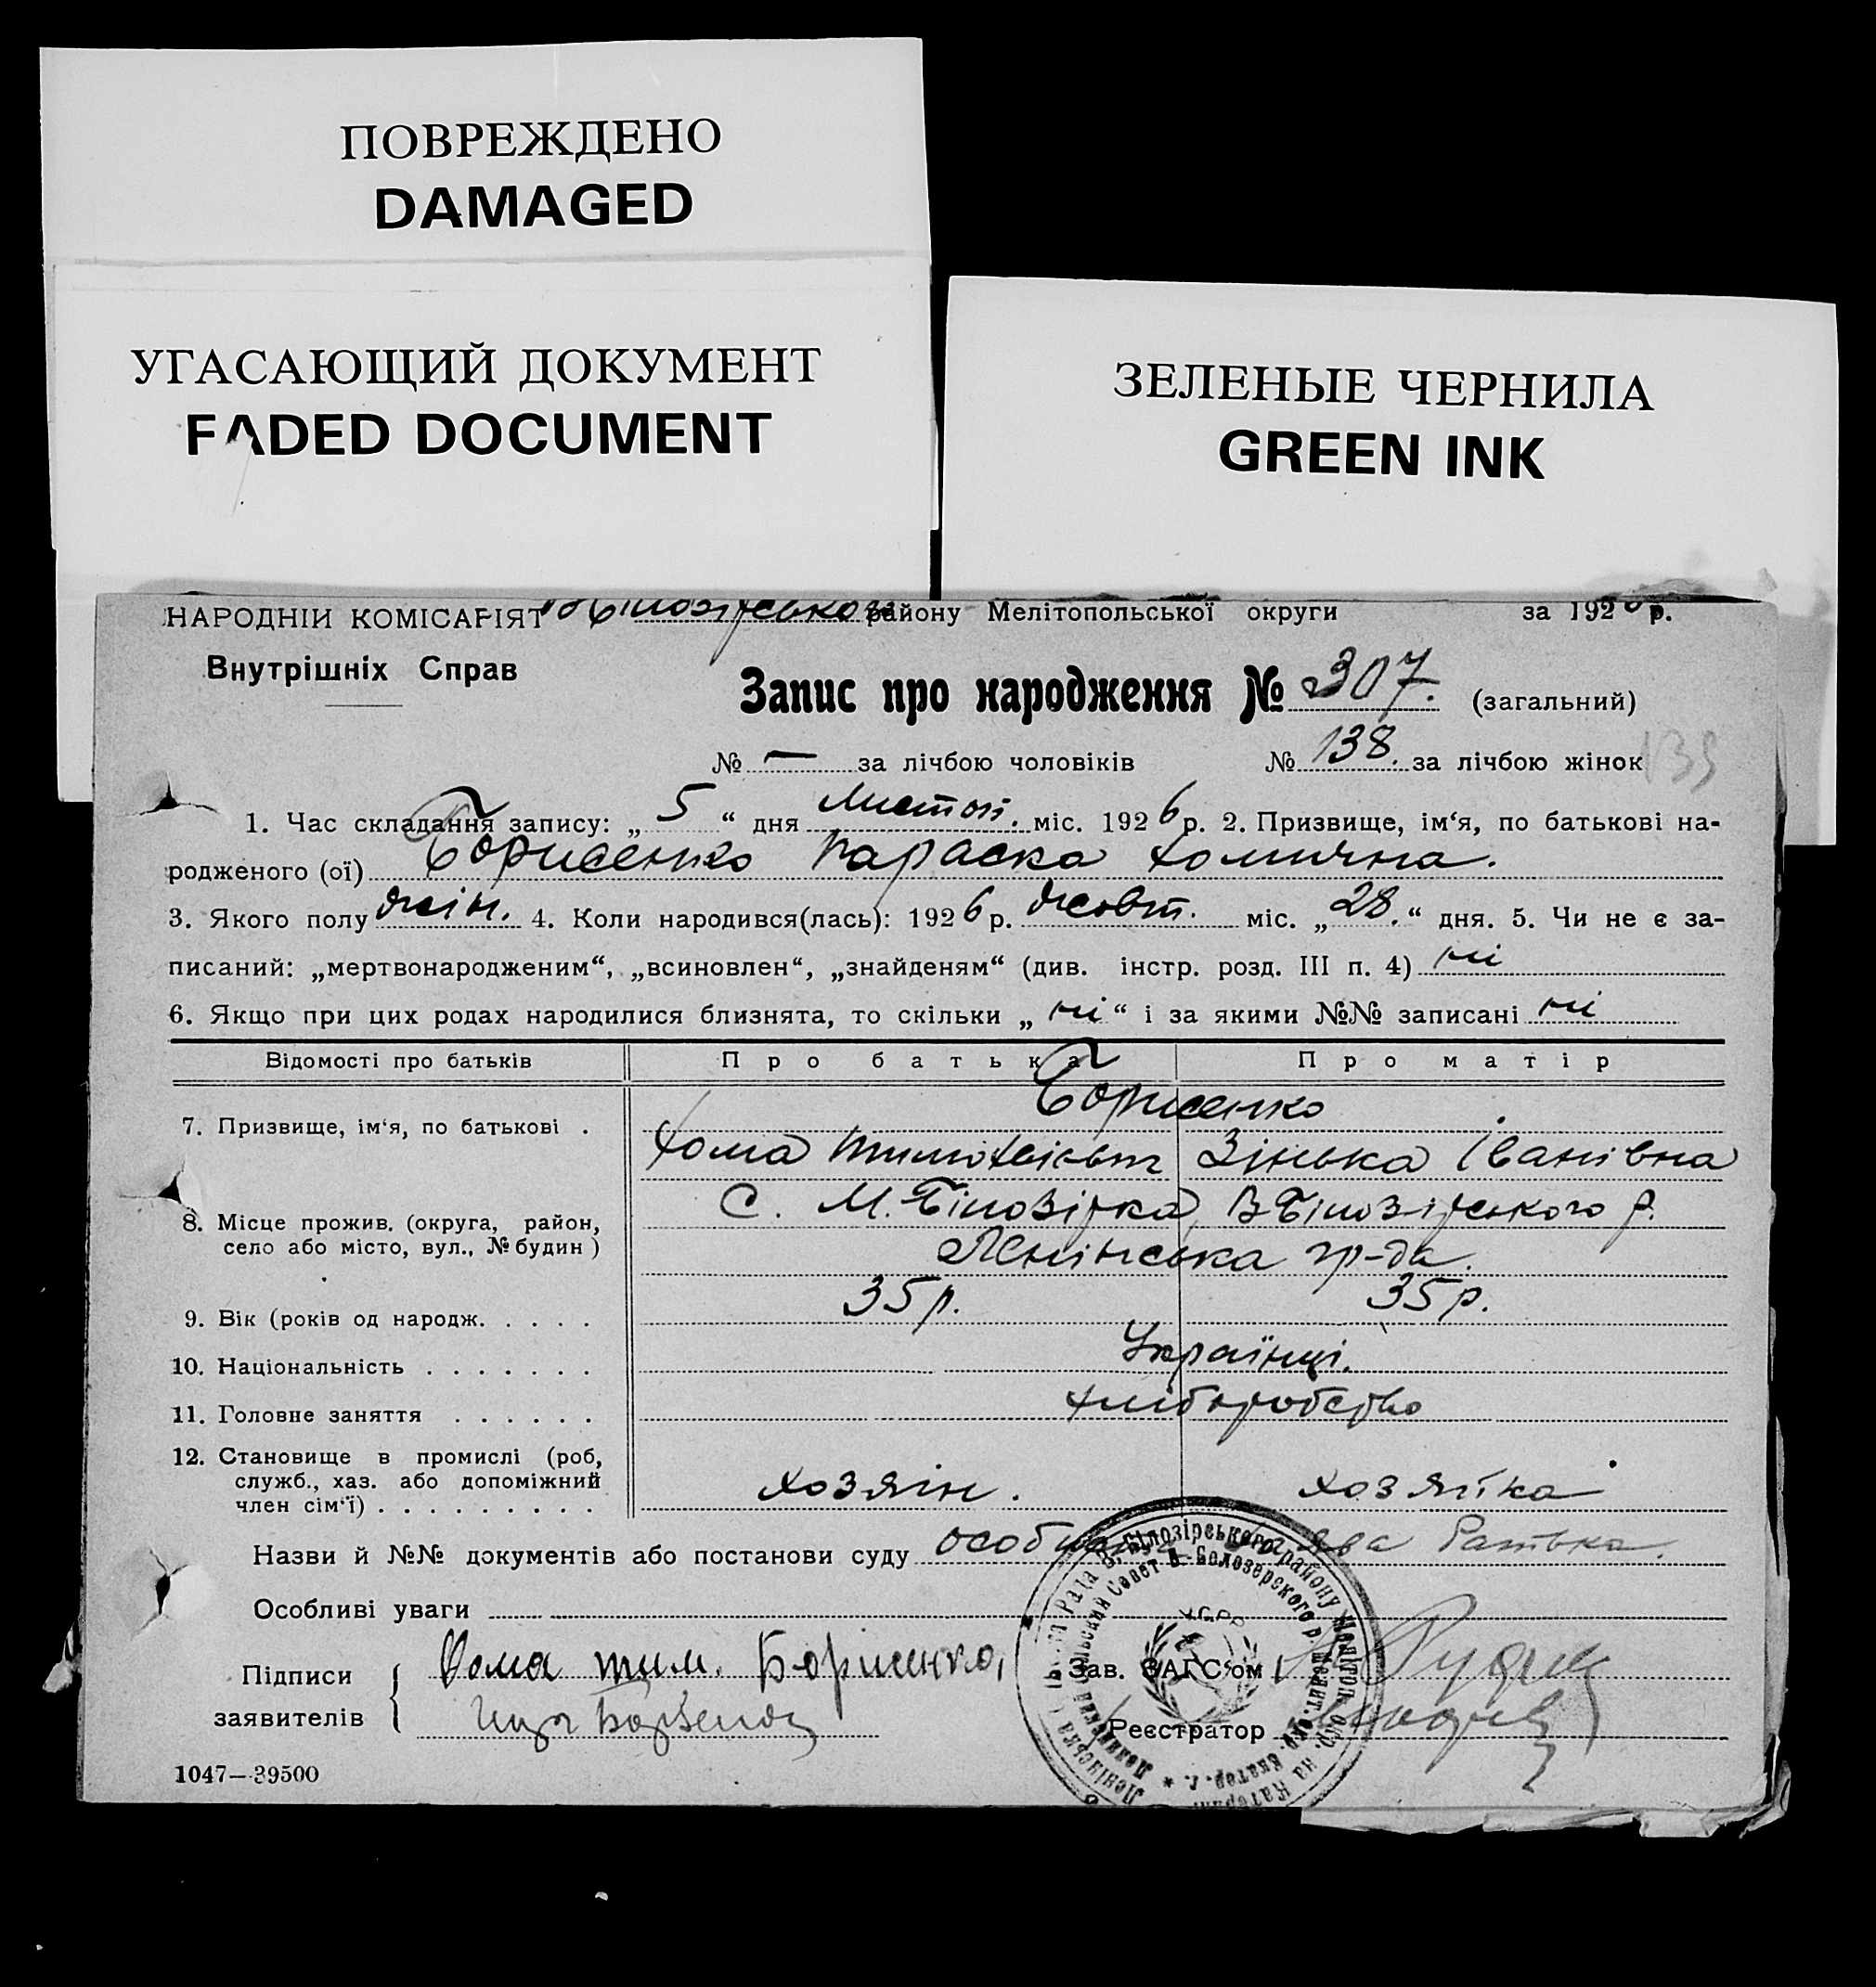 ПОВРЕЖДЕНО
DAMAGED
УГАСАЮЩИЙ ДОКУМЕНТ
FADED DOCUMENT
ЗЕЛЕНЫЕ ЧЕРНИЛА
GREEN INK
НАРОДНІЙ КОМІСАРІЯТ
Внутрішніх Справ
району Мелітопольської округи за 1926 р.
Запис про народження № 307. (загальний)
№ — за лічбою чоловіків № 138. за лічбою жінок
1. Час складання запису: „ 5 “ дня листоп. міс. 1926 р. 2. Призвище, ім‘я, по батькові на-
родженого (ої) Борисенко Параска Хомична.
3. Якого полу жін. 4. Коли народився(лась): 1926 р. жовт. міс. „28.“ дня. 5. Чи не є за-
писаний: „мертвонародженим“, „всиновлен“, „знайденям“ (див. інстр. розд. III п. 4) ні
6. Якщо при цих родах народилися близнята, то скільки „ ні “ і за якими №№ записані ні
Відомості про батьків Про батька Про матір
Борисенко
7. Призвище, ім‘я, по батькові .
Хома Тимохвієвич Зінька Іванівна
С. М. Білозірка, В Білозірського р.
8. Місце прожив. (округа, район,
село або місто, вул., № будин )
Ленінська гр-да.
9. Вік (років од народж. . . . . 35 р. 35 р.
10. Національність . . . . . . . Українці.
11. Головне заняття . . . . . . хліборобство
12. Становище в промислі (роб,
служб., хаз. або допоміжний
член сім‘ї) . . . . . . . . . хозяїн. хозяйка
Назви й №№ документів або постанови суду особиста заява Батька.
Особливі уваги
Підписи
заявителів
Хома тим. Борисенко,
Зав. ЗАГС‘ом
Реєстратор
1047—39500